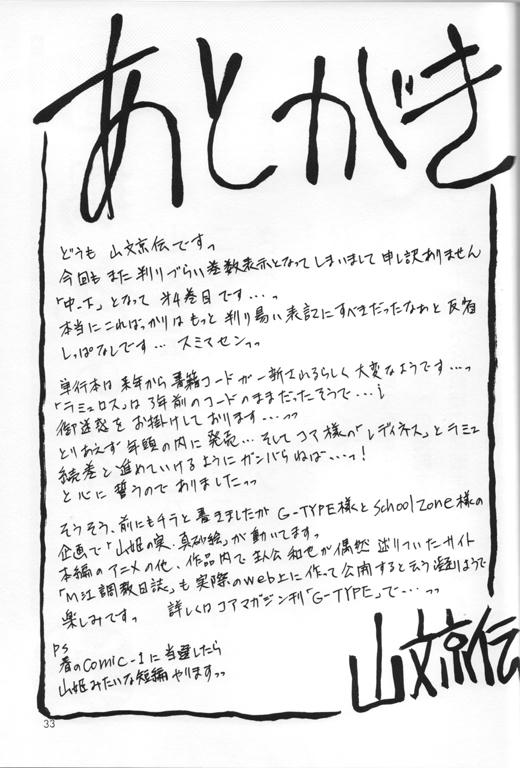 あとがき
どうも 山文京伝ですっ
今回もまた判りづらい巻数表示となってしまいまして申し訳ありません
「中‐下」となって 第4巻目です…っ
本当にこればっかりはもっと判り易い表記にすべきだったなあと反省
しっぱなしです… スミマセンっっ
単行本は来年から書籍コードが一新されるらしく大変なようです…っ
「ラミュロス」は3年前のコードのままだったそうで…!
御迷惑をお掛けしております…っっ
とりあえず年頭の内に発売…そしてコア様の「レディネス」とラミュ
続巻と進めていけるようにガンバらねば…っ!
と心に誓うのでありましたっっ
そうそう、前にもチラと書きましたが G-TYPE様とSchoolZone様の
企画で「山姫の実、真砂絵」が動いてます。
本編のアニメの他、作品内で主人公和也が偶然辿りついたサイト
「M江調教日誌」も実際のweb上に作って公開すると云う凝りようで
楽しみですっ 詳しくはコアマガジン刊「G-TYPE」で…っっ
PS
春のComic-1に当選したら
山姫みたいな短編やりますっっ
山文京伝
33